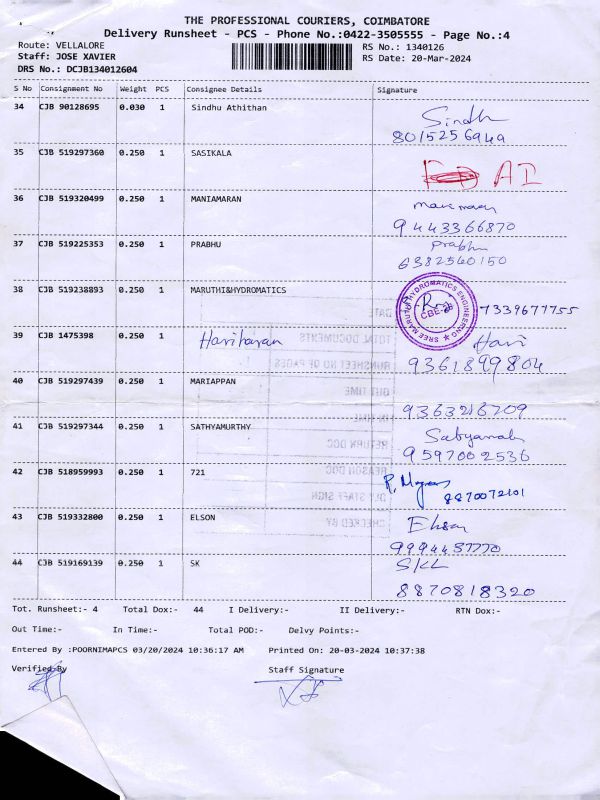 THE PROFESSIONAL COURIERS, COIMBATORE
Delivery Runsheet - PCS - Phone No.:0422-3505555 - Page No.:4
Route: VELLALORE RS No.: 1340126
Staff: JOSE XAVIER RS Date: 20-Mar-2024
DRS No.: DCJB134012604
S No Consignment No Weight PCS Consignee Details Signature
34 CJB 90128695 0.030 1 Sindhu Athithan Sindh
8015256949
35 CJB 519297360 0.250 1 SASIKALA AI
36 CJB 519320499 0.250 1 MANIAMARAN
9443366870
37 CJB 519225353 0.250 1 PRABHU Prabhu
6382560150
38 CJB 519238893 0.250 1 MARUTHI&HYDROMATICS SREE MARUTHI HYDROMATICS ENGINEERING CBE-28 7339677755
39 CJB 1475398 0.250 1 Hariharan Hari
9361899804
40 CJB 519297439 0.250 1 MARIAPPAN
9363216709
41 CJB 519297344 0.250 1 SATHYAMURTHY
9597002536
42 CJB 518959993 0.250 1 721
8870072101
43 CJB 519332800 0.250 1 ELSON
9994437770
44 CJB 519169139 0.250 1 SK
8870818320
DATE
TOTAL DOCUMENTS
RUNSHEET NO OF PAGES
OUT TIME
IN TIME
RETURN DOC
REASON DOC
OUT STAFF SIGN
CHECKED BY
Tot. Runsheet:- 4 Total Dox:- 44 I Delivery:- II Delivery:- RTN Dox:-
Out Time:- In Time:- Total POD:- Delvy Points:-
Entered By :POORNIMAPCS 03/20/2024 10:36:17 AM Printed On: 20-03-2024 10:37:38
Verified By Staff Signature